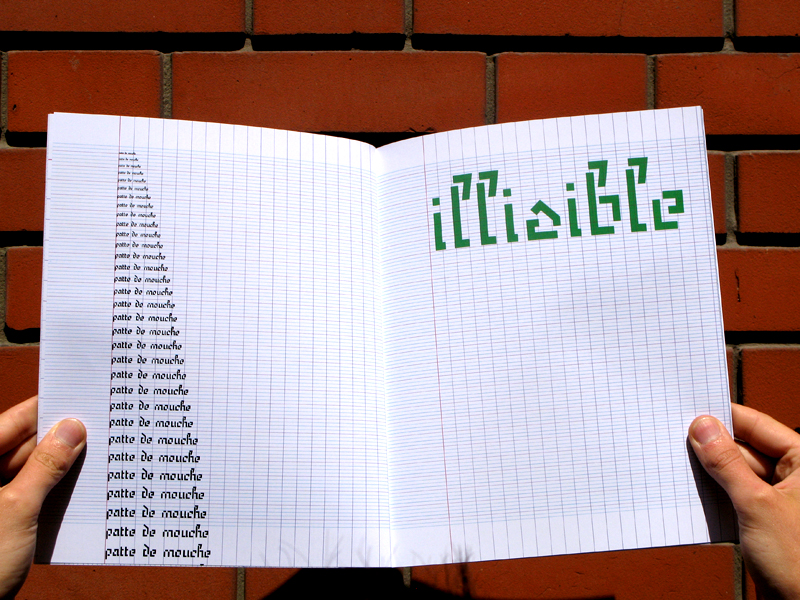 patte de mouche
patte de mouche
patte de mouche
patte de mouche
patte de mouche
patte de mouche
patte de mouche
patte de mouche
patte de mouche
patte de mouche
patte de mouche
patte de mouche
patte de mouche
patte de mouche
patte de mouche
patte de mouche
patte de mouche
patte de mouche
patte de mouche
patte de mouche
patte de mouche
patte de mouche
patte de mouche
patte de mouche
patte de mouche
patte de mouche
patte de mouche
patte de mouche
patte de mouche
patte de mouche
illisible